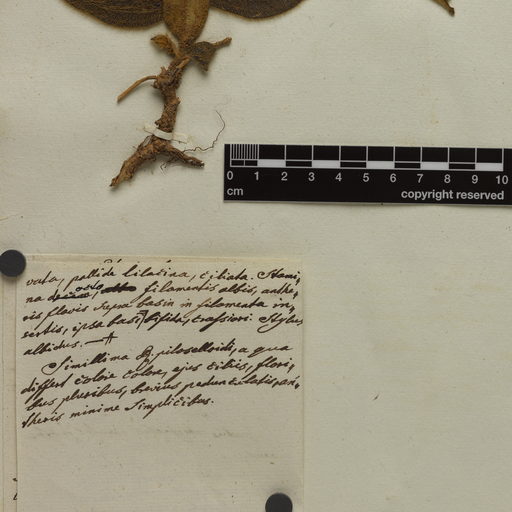 0 1 2 3 4 5 6 7 8 9 10
cm
copyright reserved
vata, pallide lilacina, ciliata. Stami,
na octo, filamentis albis, anthe,
ris flavis supra basin in filamenta in,
sertis, ipsa basi bifida, crassiori. Stylus
albidus.
Simillima R. piloselloidi, a qua
differt colore, ejus cibis, flori,
bus pluribus, brevius pedunculatis, an,
theris minime simplicibus.